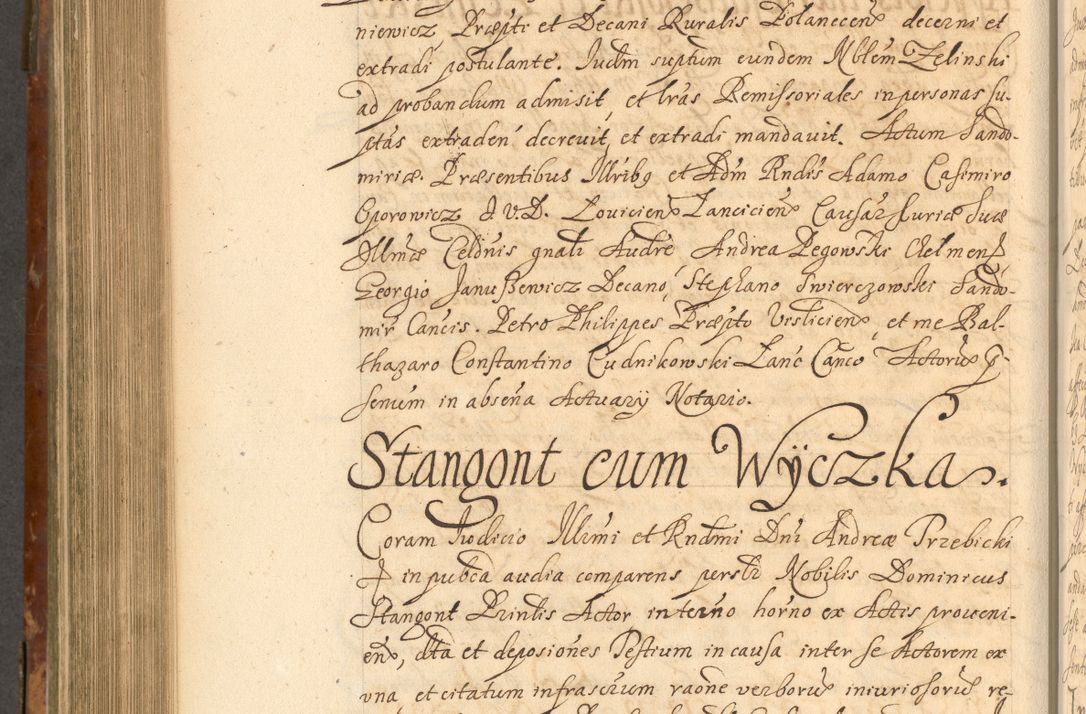 niewicz Præpti et Decani Ruralis Polanecen decerni et
extradi postulante. Judm suptum eundem Nblem Zelinski
ad probandum admisit, et lras Remissoriales in personas su-
ptas extraden decrevit, et extradi mandavit. Actum Sando-
miriæ. Præsentibus Illribq et Adm Rndis Adamo Casimiro
Oporowicz J.V.D. Loviciens Lancicien Causar Curiæ suæ
Illmæ Celdnis gnali Audre Andrea Pegowski Chelmens
Georgio Januszewicz Decano, Stephano Swierczowski Sando-
mir Cancis. Petro Philippes Præpto Vislicien et me Bal-
thazaro Constantino Cudnikowski Lanc Canco Actoru p-
senium in absena Actuary Notario.
Stangont cum Wÿczka.
Coram Judicio Illrmi et Rndmi Dni Andreæ Trzebicki
in pubca audia comparens persr Nobilis Dominicus
Stangont Prinlis Actor in termo horno ex Actis proveni-
en, dta et deposiones Testium in causa inter se Actorem ex
una et citatum infrascrum raone verboru iniuriosoru re-